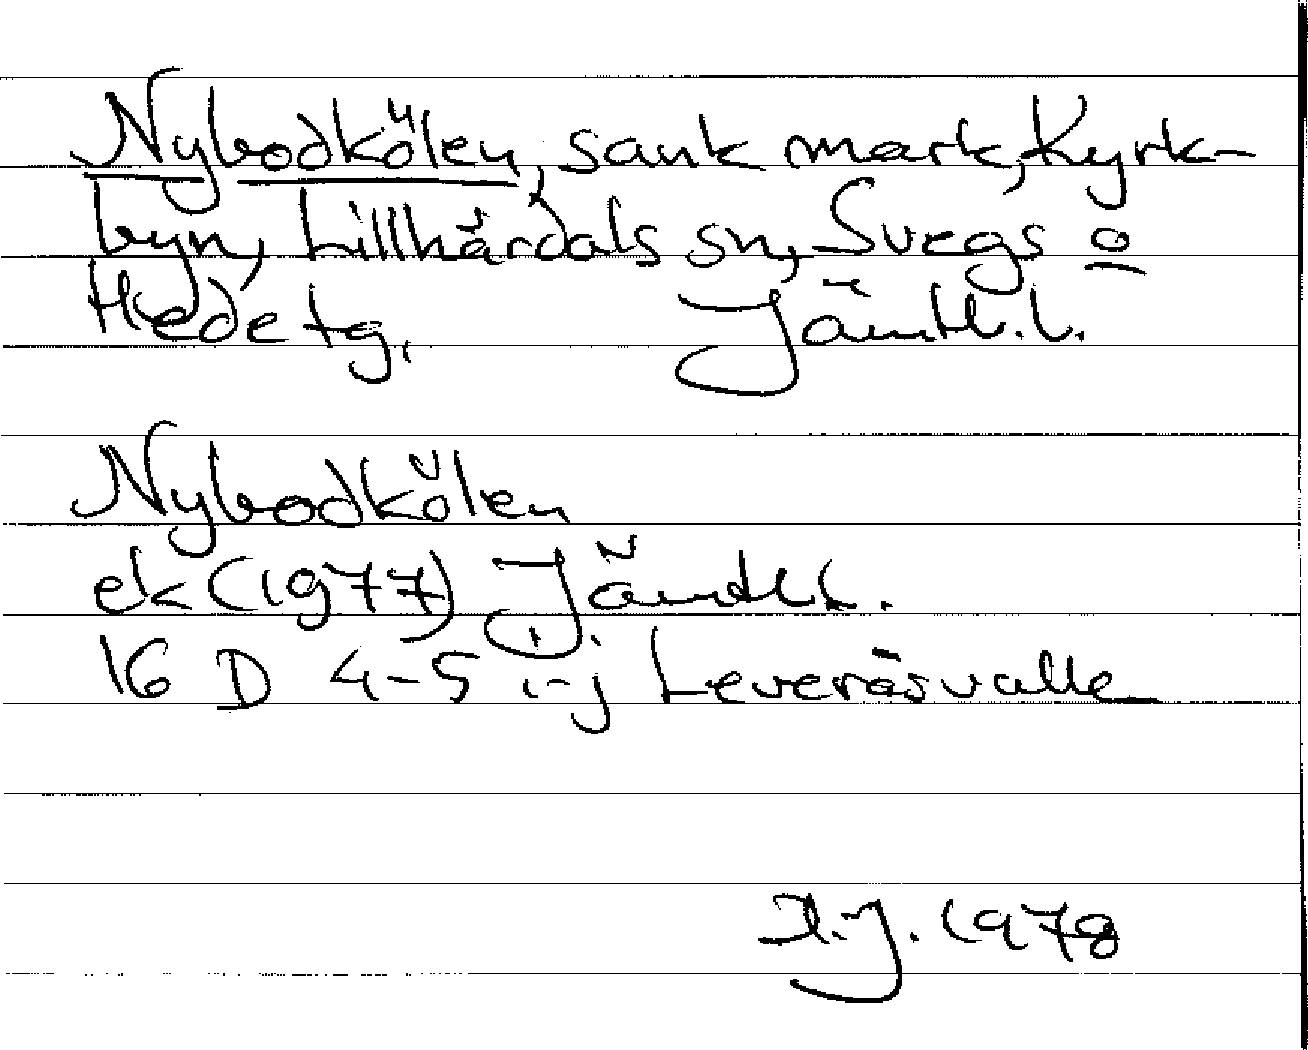 Nybodkölen, sank mark, Kyrk-
byn, Lillhärdals sn, Svegs o
Hede tg. Jämtl. l.
Nybodkölen
ek (1977) Jämtl. l.
16 D 4-5 i-j Leveråsvalle
1978